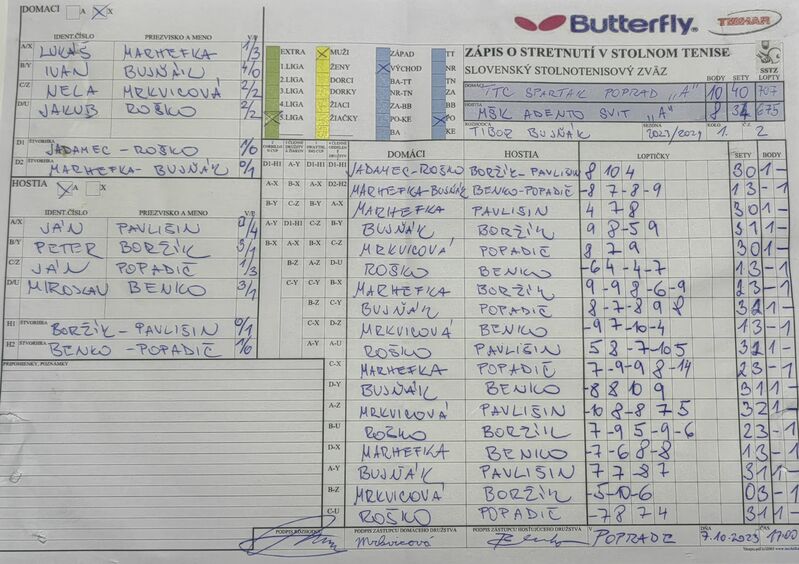 DOMACI A X
Butterfly TEMAR
IDENT.ČÍSLO PRIEZVISKO A MENO V/P
A/X LUKÁŠ MARHEFKA 1/3
B/Y IVAN BUJŇÁK 4/0
C/Z NELA MRKVICOVÁ 2/2
D/U JAKUB ROŠKO 2/2
D1 ŠTVORHRA JADAMEC - ROŠKO 1/0
D2 ŠTVORHRA MARHEFKA - BUJŇÁK 0/1
EXTRA MUŽI ZÁPAD TT
1.LIGA ŽENY VÝCHOD NR
2.LIGA DORCI BA-TT TN
3.LIGA DORKY NR-TN ZA
4.LIGA ŽIACI ZA-BB BB
5.LIGA ŽIAČKY PO-KE PO
ZÁPIS O STRETNUTÍ V STOLNOM TENISE
SLOVENSKÝ STOLNOTENISOVÝ ZVÄZ SSTZ
BODY SETY LOPTY
DOMÁCI TTC SPARTAK POPRAD "A" 10 40 707
HOSTIA MŠK ADENTO SVIT "A" 8 34 675
ROZHODCA TIBOR BUJŇÁK SEZÓNA KOLO 1. Č. 2
HOSTIA A X
IDENT.ČÍSLO PRIEZVISKO A MENO V/P
A/X JÁN PAVLIŠIN /4
B/Y PETER BORŽÍK 3/1
C/Z JÁN POPADIČ 1/3
D/U MIROSLAV BENKO 3/1
H1 ŠTVORHRA BORŽÍK - PAVLIŠIN 0/1
H2 ŠTVORHRA BENKO - POPADIČ 1/0
PRIPOMIENKY, POZNÁMKY
DOMÁCI HOSTIA LOPTIČKY SETY BODY
D1-H1 A-Y D1-H1 JADAMEC-ROŠKO BORŽÍK-PAVLIŠIN 8 10 4 3 0 1 -
A-X B-X A-X D2-H2 MARHEFKA-BUJŇÁK BENKO-POPADIČ -8 7 -8 -9 1 3 - 1
B-Y C-Z B-Y A-X MARHEFKA PAVLIŠIN 4 7 8 3 0 1 -
A-Y D1-H1 C-Z B-Y BUJŇÁK BORŽÍK 9 8 -5 9 3 1 1 -
B-X A-X B-X C-Z MRKVICOVÁ POPADIČ 8 7 9 3 0 1 -
B-Z A-Z D-U ROŠKO BENKO -6 4 -4 -7 1 3 - 1
C-Y B-X MARHEFKA BORŽÍK 9 -9 8 -6 -9 2 3 - 1
B-Z C-Y BUJŇÁK POPADIČ 8 -7 -8 9 8 3 2 1 -
C-X D-Z MRKVICOVÁ BENKO -9 7 -10 -4 1 3 - 1
A-Y A-U ROŠKO PAVLIŠIN 5 8 -7 -10 5 3 2 1 -
C-X MARHEFKA POPADIČ 7 -9 -9 8 -14 2 3 - 1
D-Y BUJŇÁK BENKO -8 8 10 9 3 1 1 -
A-Z MRKVICOVÁ PAVLIŠIN -10 8 -8 7 5 3 2 1 -
B-U ROŠKO BORŽÍK 7 -9 5 -9 -6 2 3 - 1
D-X MARHEFKA BENKO -7 -6 8 -8 1 3 - 1
A-Y BUJŇÁK PAVLIŠIN 7 7 -8 7 3 1 1 -
B-Z MRKVICOVÁ BORŽÍK -5 -10 -6 0 3 - 1
C-U ROŠKO POPADIČ -7 8 7 4 3 1 1 -
PODPIS ROZHODCU PODPIS ZÁSTUPCU DOMÁCEHO DRUŽSTVA PODPIS ZÁSTUPCU HOSŤUJÚCEHO DRUŽSTVA V DŇA ČAS
Mrkvicová POPRADE 7.10.2023 17:00